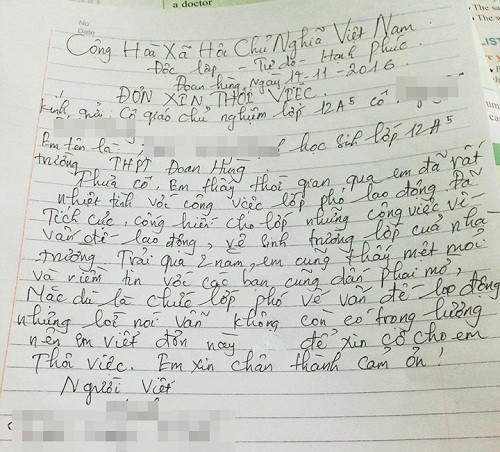 a doctor
No
Date
Công Hoà Xã Hôi Chủ Nghĩa Việt Nam
Đôc lâp - Tự do - Hanh Phúc.
Đoan hùng, ngày 14-11-2016
ĐƠN XIN THÔI VIÊC.
kính gửi: Cô giáo chủ nghiêm lớp 12A5 cô
Em tên là: học sinh lớp 12A5
trường THPT Đoan Hùng.
Thưa cô, Em thấy thời gian qua em đã rất
nhiêt tình với công viêc lớp phó lao đông. Đã
Tích cực, công hiến cho lớp những công viêc về
vấn đề lao đông, vê sinh trường lớp của nhà
trường. Trải qua 2 năm, em cũng thấy mêt moi
và niềm tin với các ban cũng dần phai mờ,
Mặc dù là chức lớp phó về vấn đề lao đông
nhưng lời nói vẫn không còn có trong lượng
nên em viết đơn nay để xin cô cho em
Thôi viêc. Em xin chân thành cảm ơn!
Người Viết
The sa
The v
LIST